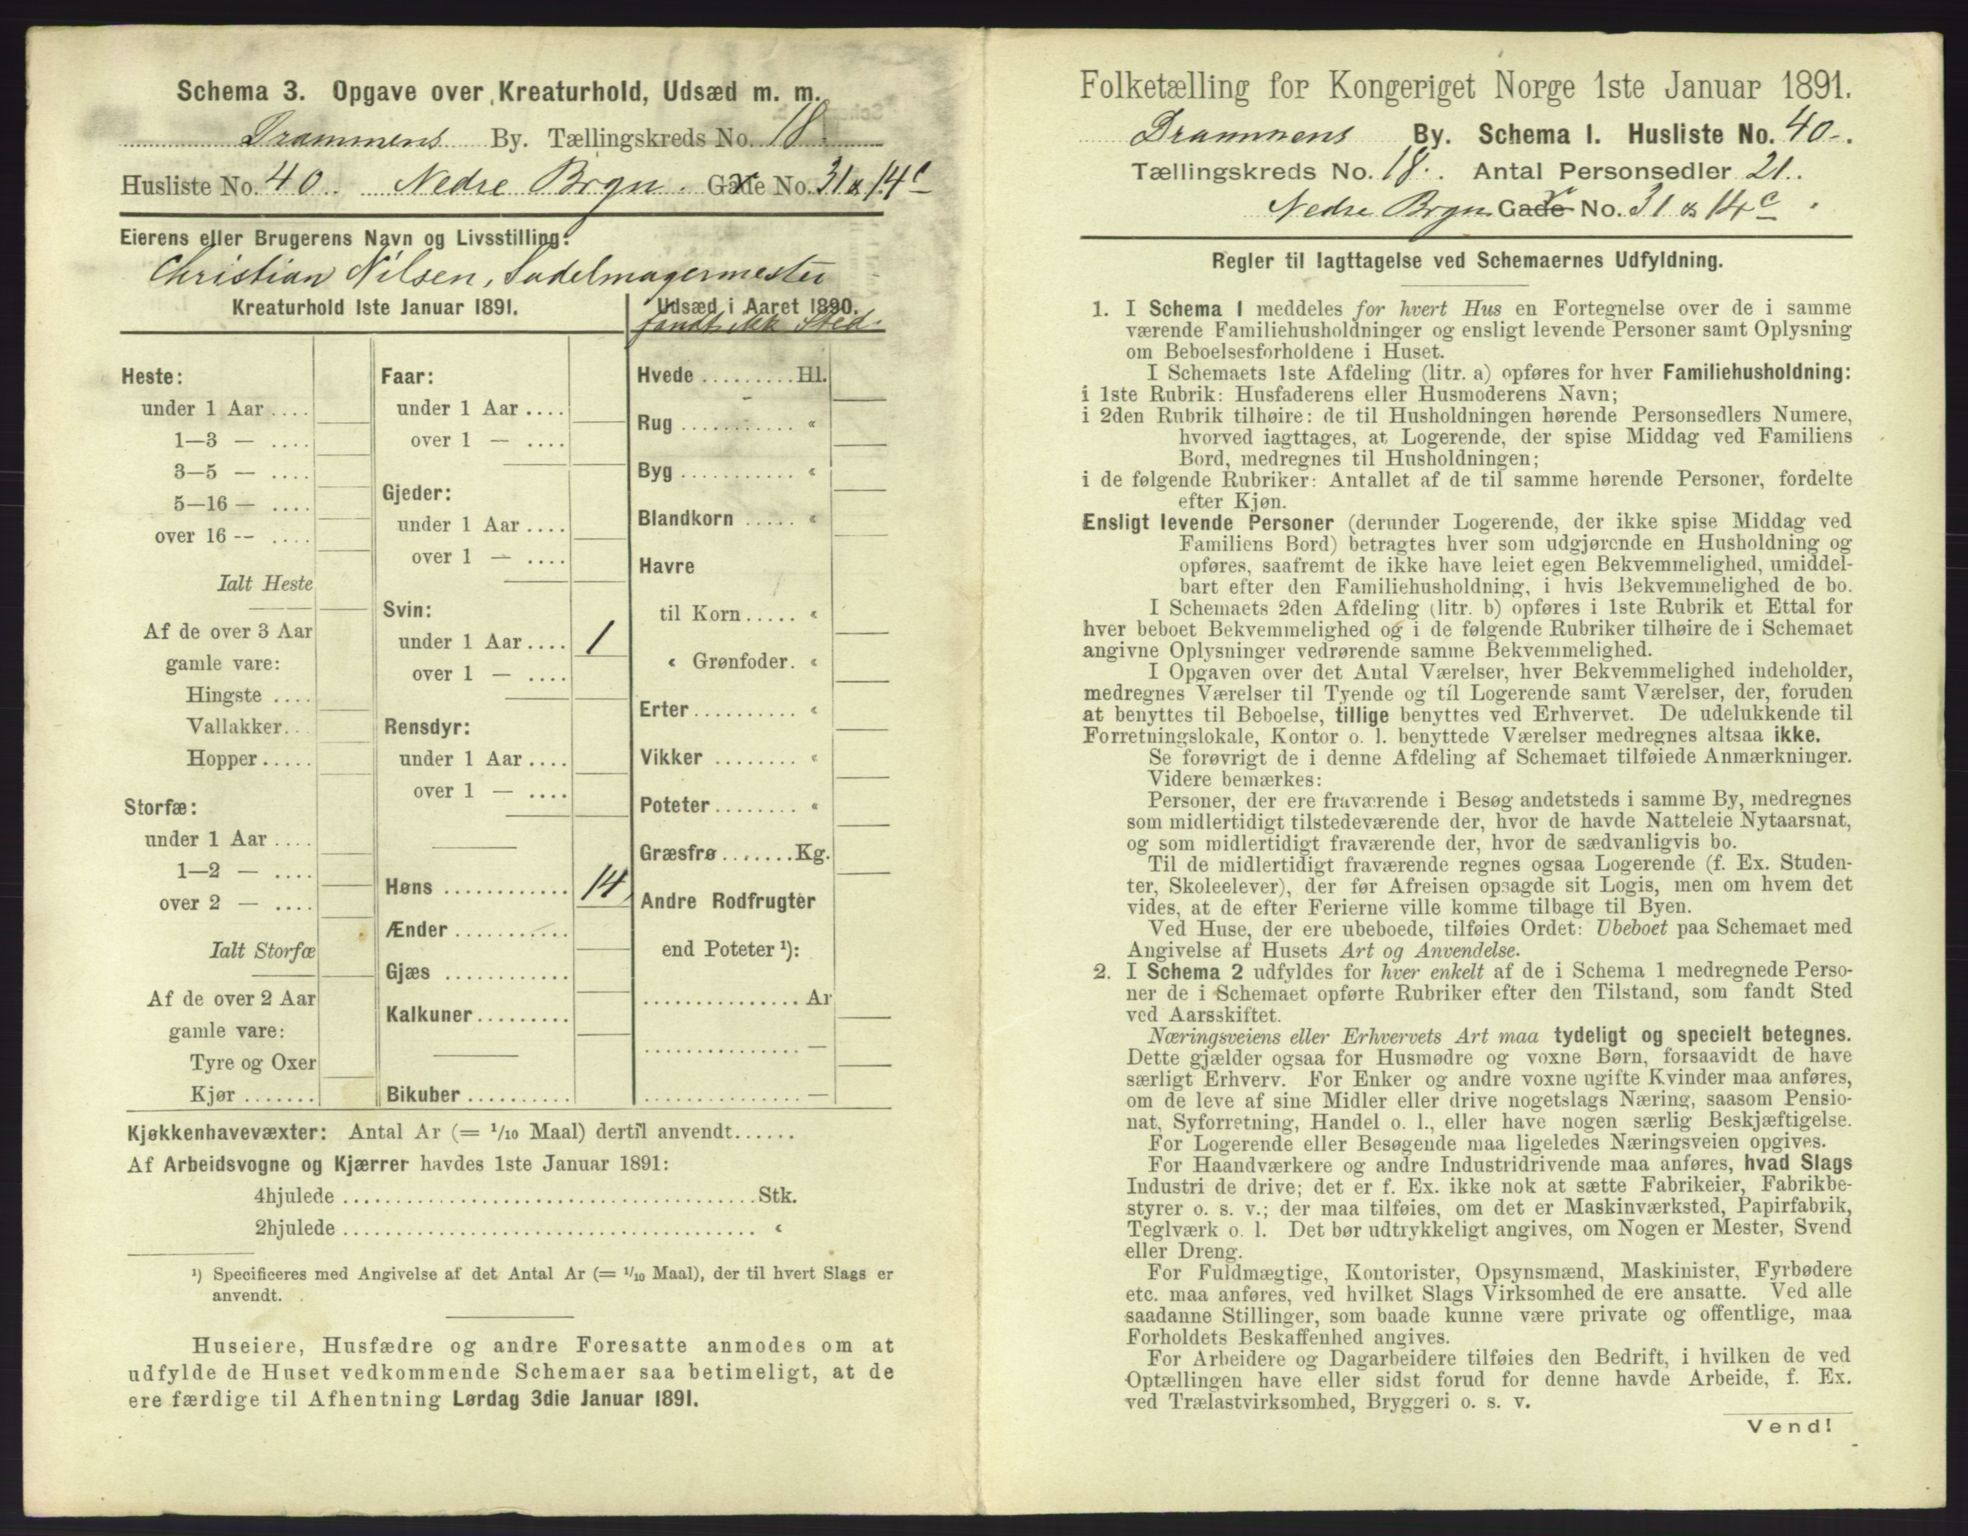 Schema 3. Opgave over Kreaturhold, Udsæd m. m.
Drammens By. Tællingskreds No. 18.
Husliste No. 40. Nedre Brgn. Gade No. 31 & 14c
Eierens eller Brugerens Navn og Livsstilling:
Christian Nilsen, Sadelmagermester
Kreaturhold 1ste Januar 1891.
Udsæd i Aaret 1890.
fandt ikk Sted.
Heste:
under 1 Aar ....
1—3 — ....
3—5 — ....
5—16 — ....
over 16 -- ....
Ialt Heste
Af de over 3 Aar
gamle vare:
Hingste ....
Vallakker...
Hopper.....
Storfæ:
under 1 Aar ....
1—2 — ....
over 2 — ....
Ialt Storfæ
Af de over 2 Aar
gamle vare:
Tyre og Oxer
Kjør .......
Faar:
under 1 Aar ....
over 1 — ....
Gjeder:
under 1 Aar ....
over 1 — ....
Svin:
under 1 Aar .... 1
over 1 — ....
Rensdyr:
under 1 Aar ....
over 1 — ....
Høns ............ 14
Ænder ...........
Gjæs ............
Kalkuner.........
Bikuber ..........
Hvede .........Hl.
Rug ........... «
Byg ........... «
Blandkorn ..... «
Havre
til Korn ..... «
« Grønfoder. «
Erter.......... «
Vikker ........ «
Poteter........ «
Græsfrø .......Kg.
Andre Rodfrugter
end Poteter ¹):
............... Ar
............... —
............... —
Kjøkkenhavevæxter: Antal Ar (= 1/10 Maal) dertil anvendt......
Af Arbeidsvogne og Kjærrer havdes 1ste Januar 1891:
4hjulede ........................................ Stk.
2hjulede ........................................ «
¹) Specificeres med Angivelse af det Antal Ar (= 1/10 Maal), der til hvert Slags er
anvendt.
Huseiere, Husfædre og andre Foresatte anmodes om at
udfylde de Huset vedkommende Schemaer saa betimeligt, at de
ere færdige til Afhentning Lørdag 3die Januar 1891.
Folketælling for Kongeriget Norge 1ste Januar 1891.
Drammens By. Schema I. Husliste No. 40.
Tællingskreds No. 18. Antal Personsedler 21.
Nedre Brgn Gade No. 31 & 14c
Regler til Iagttagelse ved Schemaernes Udfyldning.
1. I Schema I meddeles for hvert Hus en Fortegnelse over de i samme
værende Familiehusholdninger og ensligt levende Personer samt Oplysning
om Beboelsesforholdene i Huset.
I Schemaets 1ste Afdeling (litr. a) opføres for hver Familiehusholdning:
i 1ste Rubrik: Husfaderens eller Husmoderens Navn;
i 2den Rubrik tilhøire: de til Husholdningen hørende Personsedlers Numere,
hvorved iagttages, at Logerende, der spise Middag ved Familiens
Bord, medregnes til Husholdningen;
i de følgende Rubriker: Antallet af de til samme hørende Personer, fordelte
efter Kjøn.
Ensligt levende Personer (derunder Logerende, der ikke spise Middag ved
Familiens Bord) betragtes hver som udgjørende en Husholdning og
opføres, saafremt de ikke have leiet egen Bekvemmelighed, umiddel-
bart efter den Familiehusholdning, i hvis Bekvemmelighed de bo.
I Schemaets 2den Afdeling (litr. b) opføres i 1ste Rubrik et Ettal for
hver beboet Bekvemmelighed og i de følgende Rubriker tilhøire de i Schemaet
angivne Oplysninger vedrørende samme Bekvemmelighed.
I Opgaven over det Antal Værelser, hver Bekvemmelighed indeholder,
medregnes Værelser til Tyende og til Logerende samt Værelser, der, foruden
at benyttes til Beboelse, tillige benyttes ved Erhvervet. De udelukkende til
Forretningslokale, Kontor o. l. benyttede Værelser medregnes altsaa ikke.
Se forøvrigt de i denne Afdeling af Schemaet tilføiede Anmærkninger.
Videre bemærkes:
Personer, der ere fraværende i Besøg andetsteds i samme By, medregnes
som midlertidigt tilstedeværende der, hvor de havde Natteleie Nytaarsnat,
og som midlertidigt fraværende der, hvor de sædvanligvis bo.
Til de midlertidigt fraværende regnes ogsaa Logerende (f. Ex. Studen-
ter, Skoleelever), der før Afreisen opsagde sit Logis, men om hvem det
vides, at de efter Ferierne ville komme tilbage til Byen.
Ved Huse, der ere ubeboede, tilføies Ordet: Ubeboet paa Schemaet med
Angivelse af Husets Art og Anvendelse.
2. I Schema 2 udfyldes for hver enkelt af de i Schema 1 medregnede Perso-
ner de i Schemaet opførte Rubriker efter den Tilstand, som fandt Sted
ved Aarsskiftet.
Næringsveiens eller Erhvervets Art maa tydeligt og specielt betegnes.
Dette gjælder ogsaa for Husmødre og voxne Børn, forsaavidt de have
særligt Erhverv. For Enker og andre voxne ugifte Kvinder maa anføres,
om de leve af sine Midler eller drive nogetslags Næring, saasom Pensio-
nat, Syforretning, Handel o. l., eller have nogen særlig Beskjæftigelse.
For Logerende eller Besøgende maa ligeledes Næringsveien opgives.
For Haandværkere og andre Industridrivende maa anføres, hvad Slags
Industri de drive; det er f. Ex. ikke nok at sætte Fabrikeier, Fabrikbe-
styrer o. s. v.; der maa tilføies, om det er Maskinværksted, Papirfabrik,
Teglværk o. l. Det bør udtrykkeligt angives, om Nogen er Mester, Svend
eller Dreng.
For Fuldmægtige, Kontorister, Opsynsmænd, Maskinister, Fyrbødere
etc. maa anføres, ved hvilket Slags Virksomhed de ere ansatte. Ved alle
saadanne Stillinger, som baade kunne være private og offentlige, maa
Forholdets Beskaffenhed angives.
For Arbeidere og Dagarbeidere tilføies den Bedrift, i hvilken de ved
Optællingen have eller sidst forud for denne havde Arbeide, f. Ex.
ved Trælastvirksomhed, Bryggeri o. s. v.
Vend!